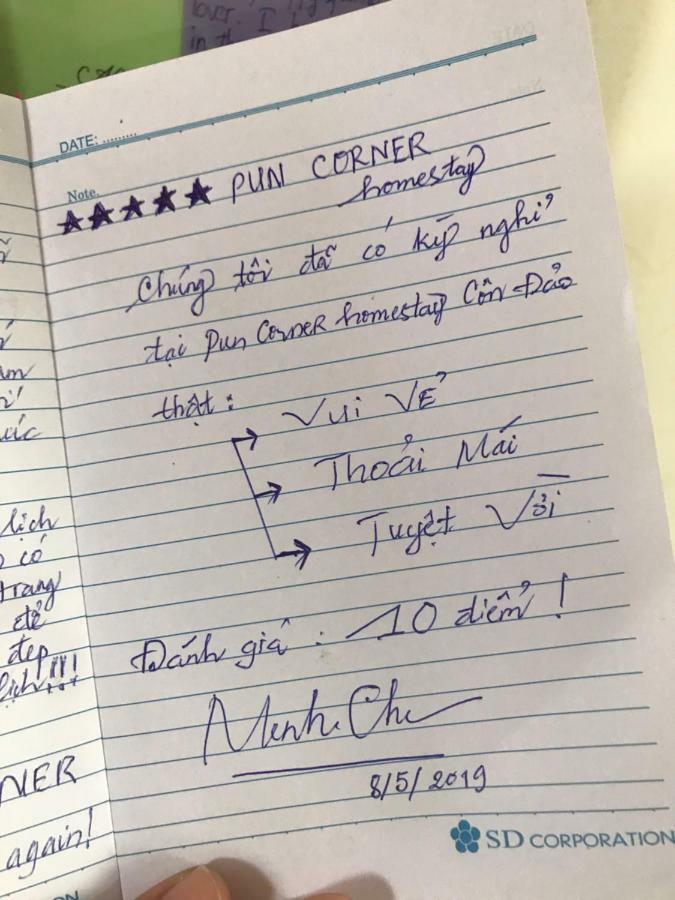 lover.
in th I
DATE: .........
Note.
★★★★★ PUN CORNER
homestay
Chúng tôi đã có kỳ nghỉ
tại Pun Corner homestay Côn Đảo
thật:
→ Vui Vẻ
→ Thoải Mái
→ Tuyệt Vời
Đánh giá: 10 điểm!
Minh Chi
8/5/2019
SD CORPORATION
lịch
có
trang
để
đẹp
lịch!!!
NER
again!
ON